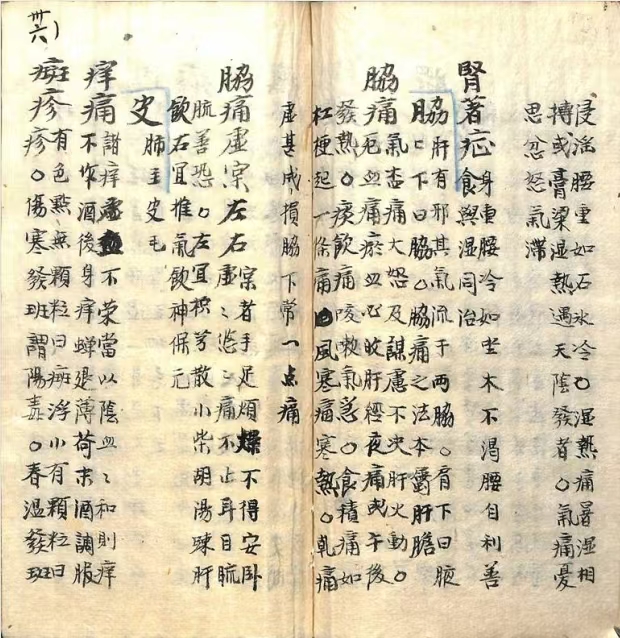 浸淫腰重如石水冷〇湿熱痛暑湿相
搏或膏梁湿熱遇天陰發者〇氣痛憂
思忿怒氣滞
腎著症身重腰冷如坐水不渴腰自利善
食與湿同治
脇肝有邪其氣流于两脇〇肩下曰腋
〻下曰脇〇脇痛之法本肝膽
脇痛氣痛大怒及謀慮不决肝火動〇
死血痛瘀血必攻肝經夜痛或午後
發熱〇痰飲痛咳嗽氣急〇食積痛如
杠梗起一條痛風寒痛寒熱〇乾痛
虚甚成損脇下常一点痛
脇痛虚实左右实者手足煩燥不得安卧
虚〻〻痛不止耳目䀮
䀮善恐〇左宜枳芎散小柴胡湯踈肝
飲右宜推氣飲神保元
皮肺主皮毛
痒痛諸痒虚不荣當以陰血〻和則痒
不作酒後身痒蝉退薄荷末酒調服
斑疹有色點無顆粒曰斑浮小有顆粒曰
疹〇傷寒發斑謂陽毒〇春温發斑
卅六